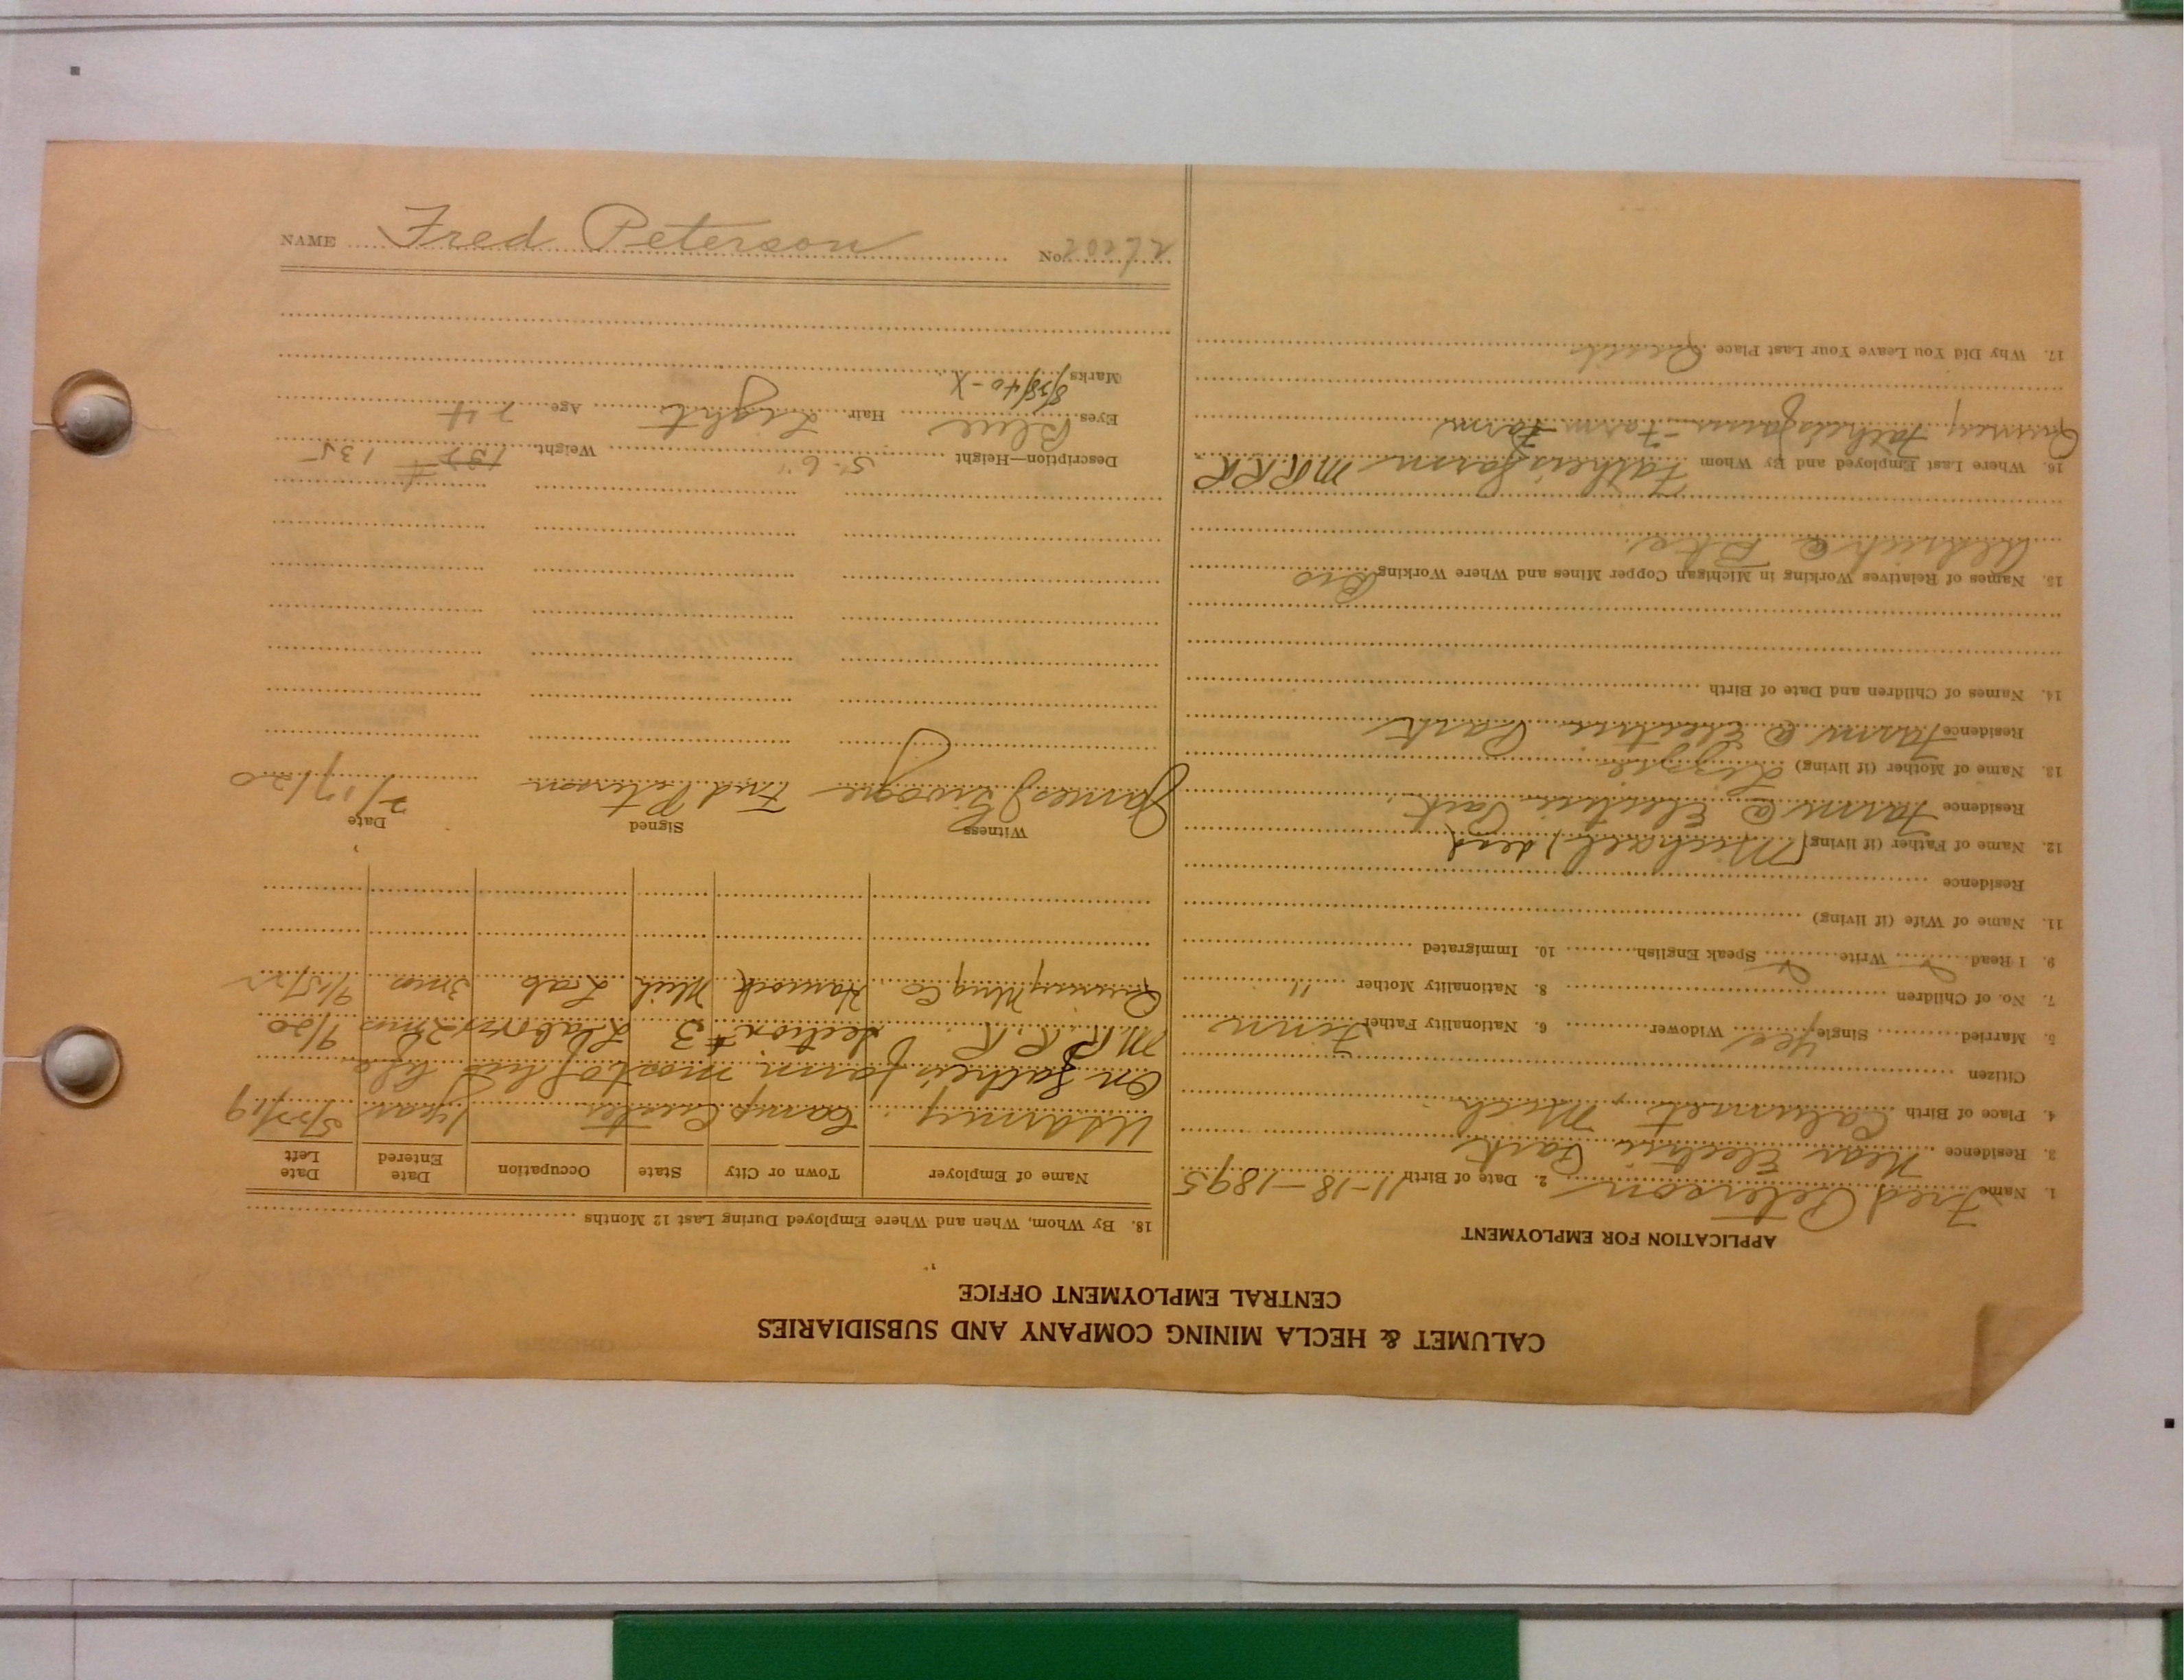 CALUMET & HECLA MINING COMPANY AND SUBSIDIARIES
CENTRAL EMPLOYMENT OFFICE
APPLICATION FOR EMPLOYMENT
1. Name Fred Peterson 2. Date of Birth 11-18-1895
3. Residence Near Electric Park
4. Place of Birth Calumet, Mich
Citizen
5. Married Single yes Widower 6. Nationality Father Finn
7. No. of Children 8. Nationality Mother "
9. I Read Write Speak English 10. Immigrated
11. Name of Wife (if living)
Residence
12. Name of Father (if living) Michael, dead
Residence Farm @ Electric Park
13. Name of Mother (if living) Lizzie
Residence Farm @ Electric Park
14. Names of Children and Date of Birth
15. Names of Relatives Working in Michigan Copper Mines and Where Working Bro
@
16. Where Last Employed and By Whom Fathers farm MRRR
Quincy Fathers farm - Farm
17. Why Did You Leave Your Last Place Quit
18. By Whom, When and Where Employed During Last 12 Months
Name of Employer Town or City State Occupation Date Entered Date Left
US army Camp Custer 1 year 5/27/19
On fathers farm most of his life
M.R.R.R. Section #3 Labor 2 mos 9/20
Quincy Mng Co Hancock Mich Lab 3 mos 9/15/25
Witness Signed Date
James Fred Peterson 2/17/20
Description—Height 5'-6" Weight 135
Eyes Blue Hair Light Age 24
Marks 8/28/40-X
NAME Fred Peterson No. 20272